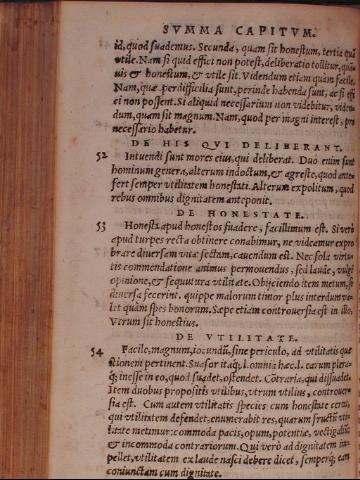 SVMMA CAPITVM.
id, quod suademus. Secunda, quam sit honestum, tertia quã
vtile. Nam si quid effici non potest, deliberatio tollitur, quã
uis & honestum, & vtile sit. Videndum etiam quàm facile.
Nam, quæ perdifficilia sunt, perinde habenda sunt, ac si effi
ci non possent. Si aliquid necessarium non videbitur, viden
dum, quàm sit magnum. Nam, quod per magni interest, pro
necessario habetur.
DE HIS QVI DELIBERANT.
52 Intuendi sunt mores eius, qui deliberat. Duo enim sunt
hominum genera, alterum indoctum, & agreste, quod ante-
fert semper vtilitatem honestati. Alterum expolitum, quod
rebus omnibus dignitatem anteponit.
DE HONESTATE.
53 Honesta apud honestos suadere, facillimum est. Si verò
apud turpes recta obtinere conabimur, ne videamur expro
brare diuersam vitæ sectam, cauendum est. Nec sola virtu
tis commendatione animus permouendus, sed laude, vulgi
opinione, & sequutura vtilitate. Obijciendo item metum, si
diuersa fecerint. quippe maiorum timor plus interdum va-
let quàm spes bonorum. Sæpe etiam controuersia est in illo,
Vtrum sit honestius.
DE VTILITATE.
54 Facile, magnum, iocundũ, sine periculo, ad vtilitatis quæ
stionem pertinent. Suasor itaq; l. omnia hæc. l. earum plera-
q; inesse in eo, quod suadet, ostendet. Cõtraria, qui dissuadet.
Item duobus propositis vtilibus, vtrum vtilius, controuer-
sia est. Cum autem vtilitatis species cum honestate certat,
qui vtilitatem defendet, enumerabit res, quarum fructu vti-
litate metimur: commoda pacis, opum, potentiæ, vectigaliũ,
& incommoda contrariorum. Qui verò ad dignitatem im-
pellet, vtilitatem ex laude nasci debere dicet, semperq; eam
coniunctam cum dignitate.